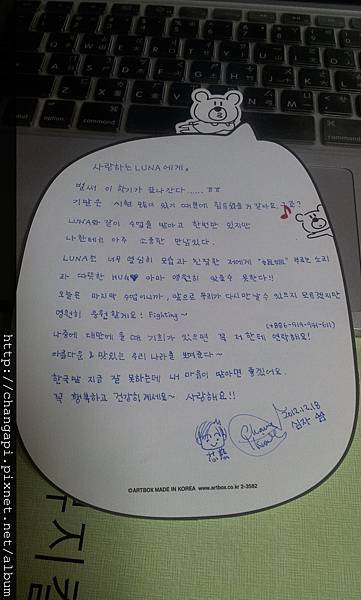 사랑하는 LUNA에게,
벌써 이 학기가 끝나간다...... ㅠㅠ
기말은 시험 많이 있기 때문에 힘들었을 거 같아요. 그죠?
LUNA와 같이 수업을 받아고 한번만 있지만
나한테는 아주 소중한 만남있다.
LUNA의 너무 열심히 모습과 친절한 저에게 부르는 소리
과 따뜻한 HUG♥ 아마 영원히 잊을수 못한다!!
오늘은 마지막 수업이니까, 앞으로 우리가 다시 만날 수 있으지 모르겠지만
영원히 응원할게요! Fighting~
(+886-919-941-611)
나중에 대만에 올 때 기회가 있으면 꼭 저한테 연락해요!
아름다운 & 맛있는 우리 나라를 보여줄다~
한국말 지금 잘 못하는데 내 마음이 받아면 좋겠어요.
꼭 행복하고 건강히 계세요~ 사랑해요!!
2012.12.18
©ARTBOX MADE IN KOREA www.artbox.co.kr 2-3582
command
option
control
command
http://changapi.pixnet.net/album